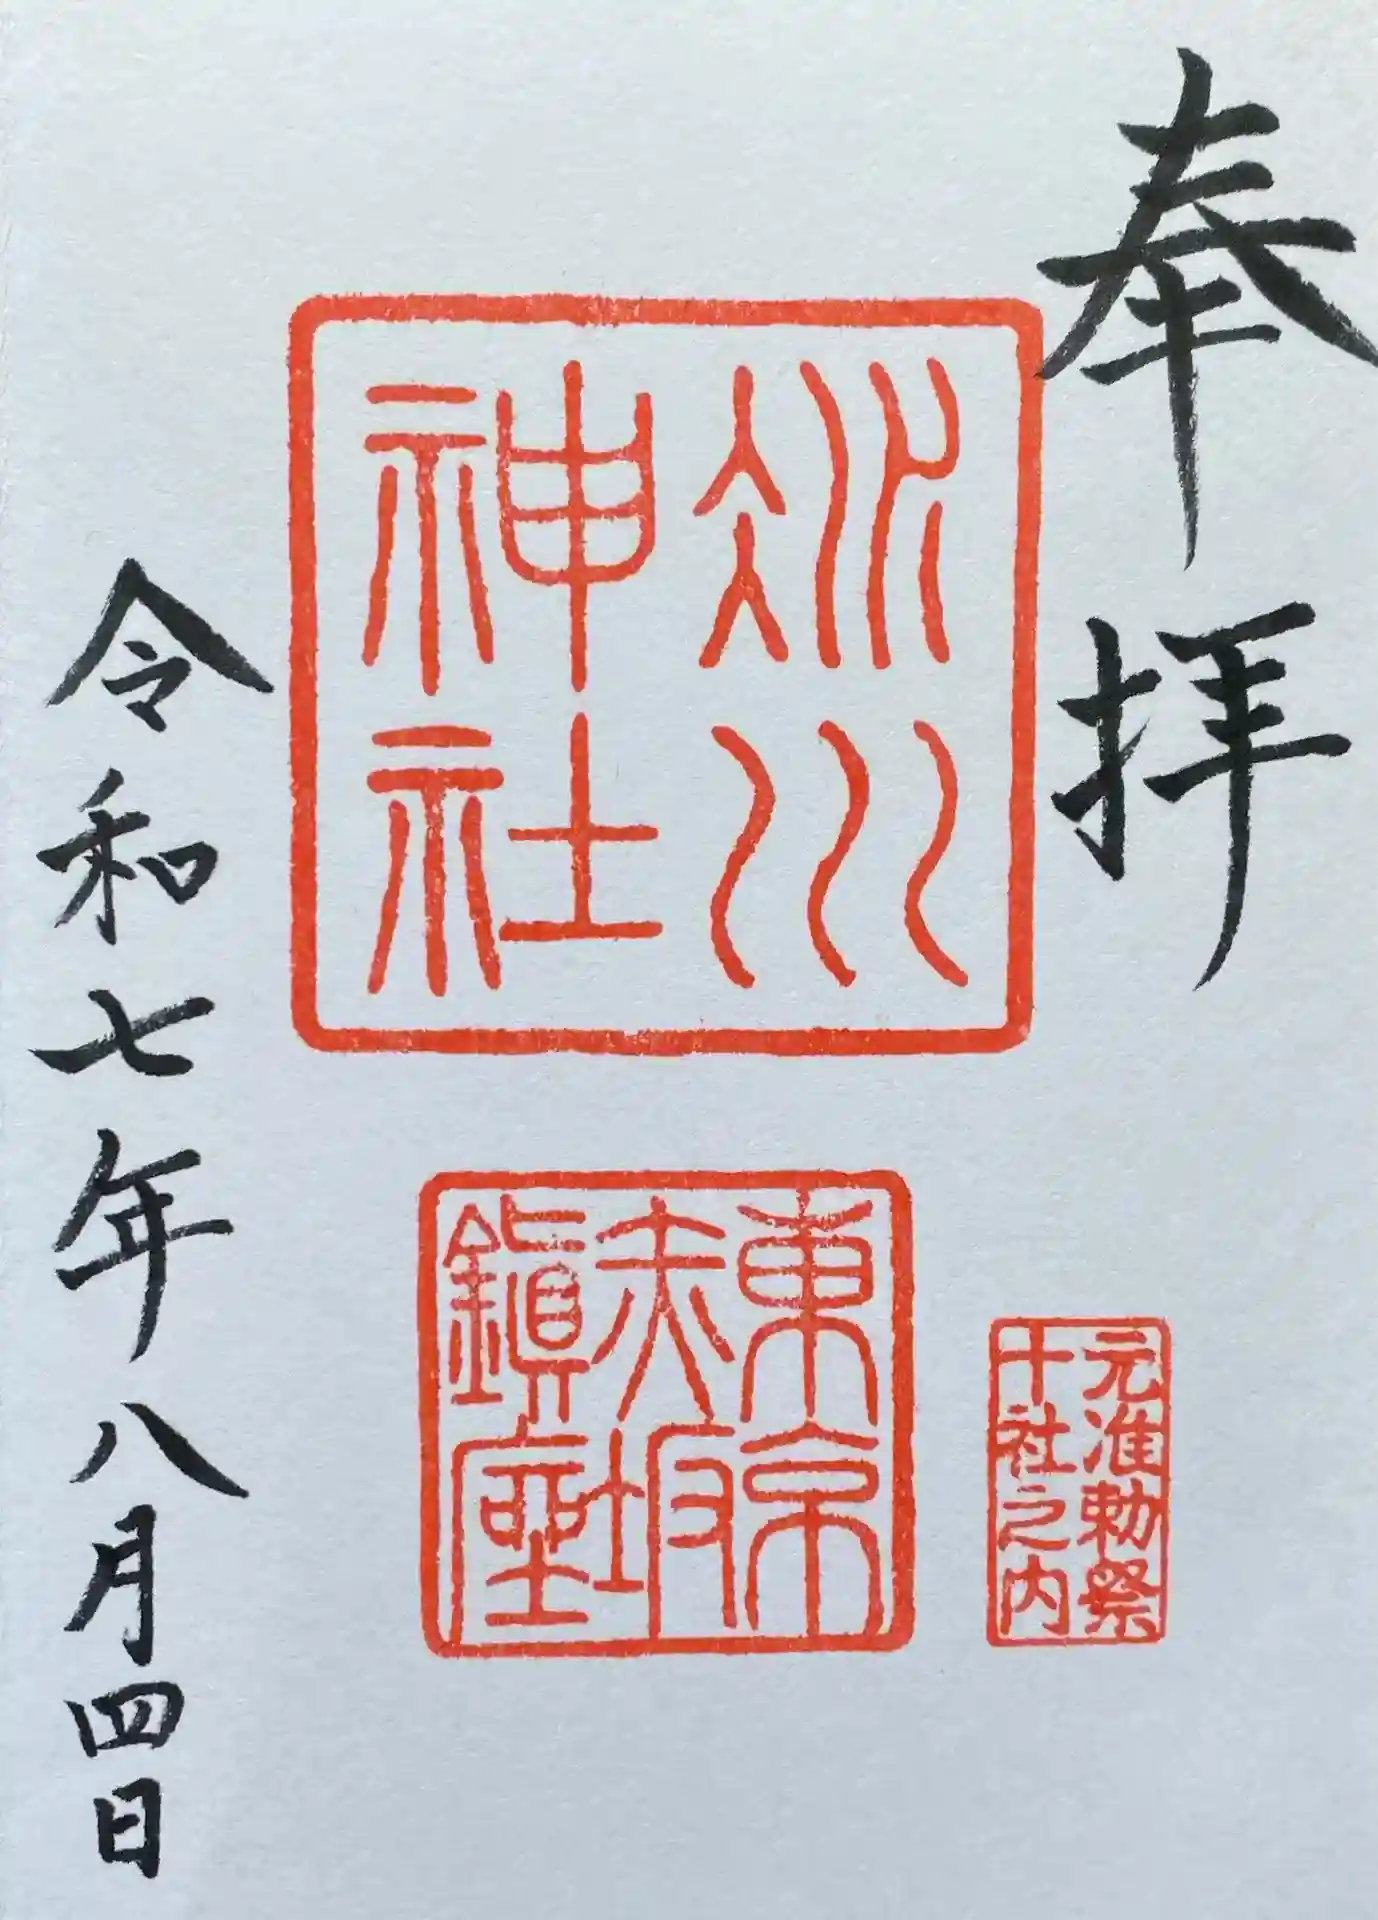 奉拝
冰川
神社
東京
赤坂
鎭座
元准勅祭
十社之内
令和七年八月四日